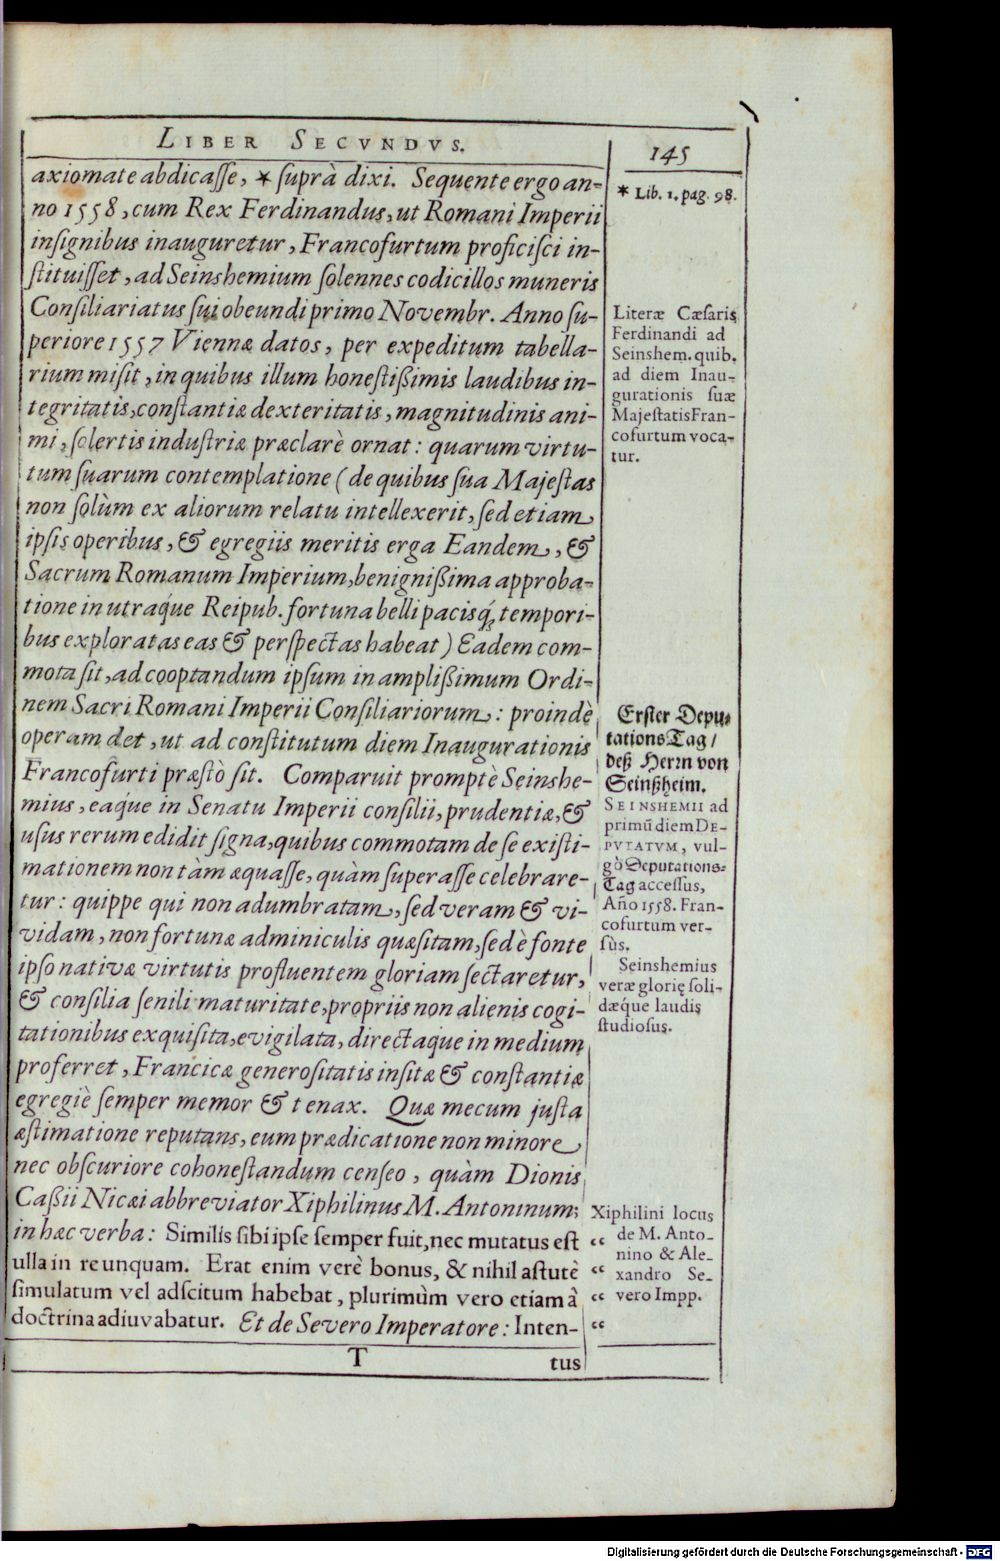 LIBER SECVNDVS.
145
axiomate abdicasse, * suprà dixi. Sequente ergo an-
no 1558, cum Rex Ferdinandus, ut Romani Imperii
insignibus inauguretur, Francofurtum proficisci in-
stituisset, ad Seinshemium solennes codicillos muneris
Consiliariatus sui obeundi primo Novembr. Anno su-
periore 1557 Viennæ datos, per expeditum tabella-
rium misit, in quibus illum honestißimis laudibus in-
tegritatis, constantiæ dexteritatis, magnitudinis ani-
mi, solertis industriæ præclarè ornat: quarum virtu-
tum suarum contemplatione (de quibus sua Majestas
non solùm ex aliorum relatu intellexerit, sed etiam
ipsis operibus, & egregiis meritis erga Eandem, &
Sacrum Romanum Imperium, benignißima approba-
tione in utraq́ue Reipub. fortuna belli pacisq́; tempori-
bus exploratas eas & perspectas habeat) Eadem com-
mota sit, ad cooptandum ipsum in amplißimum Ordi-
nem Sacri Romani Imperii Consiliariorum: proindè
operam det, ut ad constitutum diem Inaugurationis
Francofurti præstò sit. Comparuit promptè Seinshe-
mius, eaq́ue in Senatu Imperii consilii, prudentiæ, &
usus rerum edidit signa, quibus commotam de se existi-
mationem non tàm æquasse, quàm superasse celebrare-
tur: quippe qui non adumbratam, sed veram & vi-
vidam, non fortunæ adminiculis quæsitam, sed è fonte
ipso nativæ virtutis profluentem gloriam sectaretur,
& consilia senili maturitate, propriis non alienis cogi-
tationibus exquisita, evigilata, directaq́ue in medium
proferret, Francicæ generositatis insitæ & constantiæ
egregiè semper memor & tenax. Quæ mecum justa
æstimatione reputans, eum prædicatione non minore
nec obscuriore cohonestandum censeo, quàm Dionis
Caßii Nicæi abbreviator Xiphilinus M. Antoninum;
in hæc verba: Similis sibi ipse semper fuit, nec mutatus est “
ulla in re unquam. Erat enim verè bonus, & nihil astutè “
simulatum vel adscitum habebat, plurimùm vero etiam à “
doctrina adiuvabatur. Et de Severo Imperatore: Inten- “
T
tus
* Lib. 1. pag. 98.
Literæ Cæsaris
Ferdinandi ad
Seinshem. quib.
ad diem Inau-
gurationis suæ
Majestatis Fran-
cofurtum voca-
tur.
Erster Depu-
tations Tag /
deß Herrn von
Seinßheim.
SEINSHEMII ad
primũ diem DE-
PVTATVM, vul-
gò Deputations-
Tag accessus,
Año 1558. Fran-
cofurtum ver-
sùs.
Seinshemius
veræ glorię soli-
dæq́ue laudis
studiosus.
Xiphilini locus
de M. Anto-
nino & Ale-
xandro Se-
vero Impp.
Digitalisierung gefördert durch die Deutsche Forschungsgemeinschaft - DFG